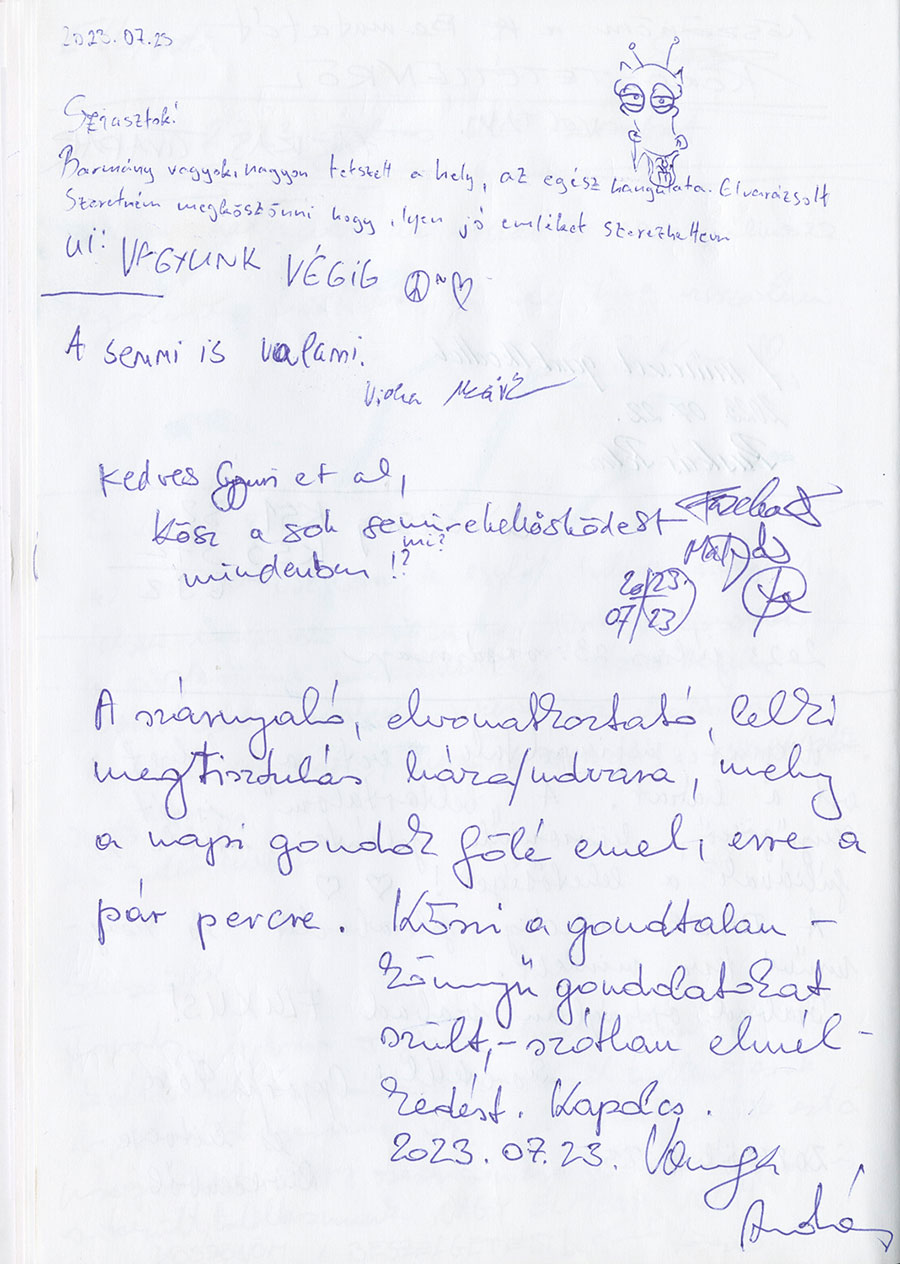 2023.07.23
Sziasztok!
Barmány vagyok, nagyon tetszett a hely, az egész hangulata. Elvarázsolt
Szeretném megköszönni hogy ilyen jó emléket szerezhettem
ui: VAGYUNK VÉGIG
A semmi is valami.
Vidra
Kedves Gyuri et al,
Kösz a sok semmirekellősködést
mi?
mindenben !?
Mátyás
2023.
07 23
A szárnyaló, elvonatkoztató, lelki
megtisztulás háza/udvara, mely
a napi gondok fölé emel, erre a
pár percre. Köszi a gondtalan –
könnyű gondolatokat
szült, – szótlan elmél-
kedést. Kapolcs.
2023.07.23.
András